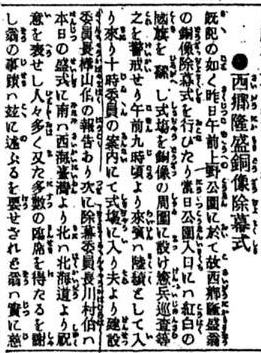 ●西郷隆盛銅像除幕式
既記の如く昨日午前上野公園に於て故西郷隆盛翁
の銅像除幕式を行ひたり當日公園入口にハ紅白の
國旗を飜し式場を銅像の周圍に設け憲兵巡査等
之を警戒せり午前九時頃より來賓ハ陸續として入
り來り十時委員の案内にて式場に入り夫より建設
委員長樺山伯の報告あり次に除幕委員長川村伯ハ
本日の盛式に南ハ西海臺灣より北ハ北海道より祝
意を表せし人々多く又た多數の臨席を得たるを謝
し翁の事蹟ハ玆に述ぶるを要せざれど翁ハ實に慈